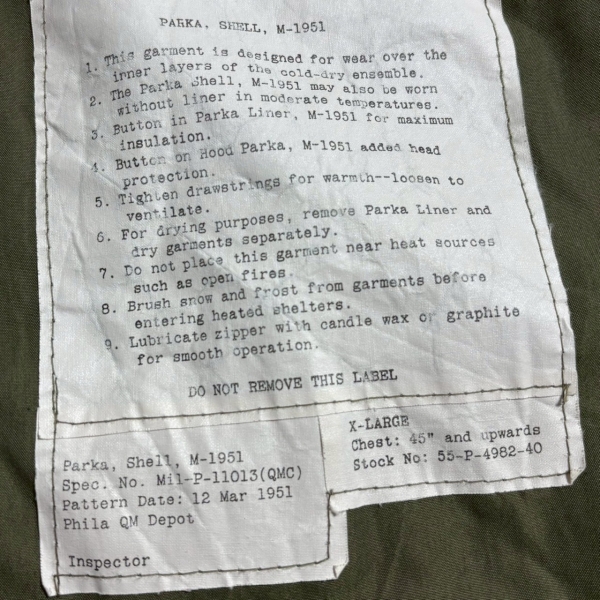 PARKA, SHELL, M-1951
1. This garment is designed for wear over the
inner layers of the cold-dry ensemble.
2. The Parka Shell, M-1951 may also be worn
without liner in moderate temperatures.
3. Button in Parka Liner, M-1951 for maximum
insulation.
4. Button on Hood Parka, M-1951 added head
protection.
5. Tighten drawstrings for warmth--loosen to
ventilate.
6. For drying purposes, remove Parka Liner and
dry garments separately.
7. Do not place this garment near heat sources
such as open fires.
8. Brush snow and frost from garments before
entering heated shelters.
9. Lubricate zipper with candle wax or graphite
for smooth operation.
DO NOT REMOVE THIS LABEL
Parka, Shell, M-1951
Spec. No. Mil-P-11013(QMC)
Pattern Date: 12 Mar 1951
Phila QM Depot
Inspector
X-LARGE
Chest: 45" and upwards
Stock No: 55-P-4982-40